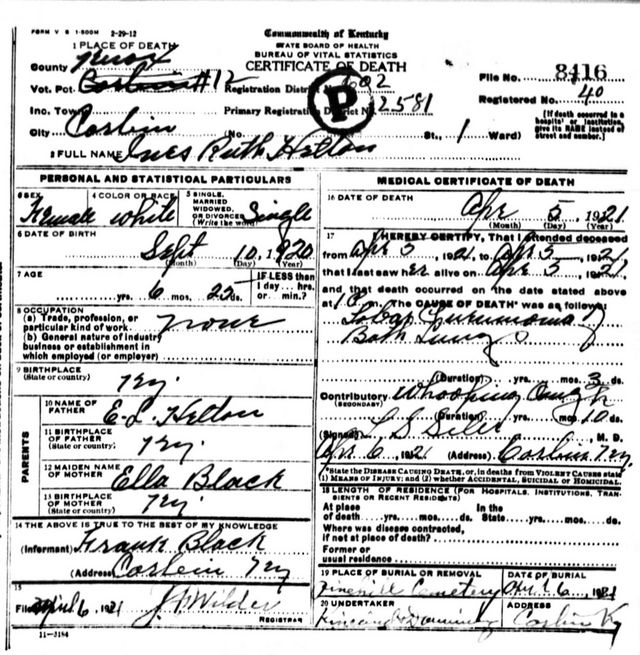 FORM V S 1-500M 2-29-12
Commonwealth of Kentucky
STATE BOARD OF HEALTH
BUREAU OF VITAL STATISTICS
CERTIFICATE OF DEATH
1 PLACE OF DEATH
County Knox
Vot. Pct. Corbin #12
Registration District No. 602
File No. 8416
Inc. Town
Primary Registration District No. 2581
Registered No. 40
P
City Corbin (No. St., 1 Ward)
[If death occurred in a hospital or institution, give its NAME instead of street and number.]
2 FULL NAME Ines Ruth Helton
PERSONAL AND STATISTICAL PARTICULARS
3 SEX Female
4 COLOR OR RACE white
5 SINGLE, MARRIED WIDOWED, OR DIVORCED (Write the word) Single
6 DATE OF BIRTH
Sept 10, 1920
(Month) (Day) (Year)
7 AGE
yrs. 6 mos. 25 ds.
IF LESS than 1 day... hrs. or min.?
8 OCCUPATION
(a) Trade, profession, or particular kind of work none
(b) General nature of industry business or establishment in which employed (or employer)
9 BIRTHPLACE
(State or country) Ky.
PARENTS
10 NAME OF FATHER E. L. Helton
11 BIRTHPLACE OF FATHER (State or country) Ky.
12 MAIDEN NAME OF MOTHER Ella Black
13 BIRTHPLACE OF MOTHER (State or country) Ky.
14 THE ABOVE IS TRUE TO THE BEST OF MY KNOWLEDGE
(Informant) Frank Black
(Address) Corbin Ky
15
Filed April 6, 1921 J. P. Wilder
REGISTRAR
11-3184
MEDICAL CERTIFICATE OF DEATH
16 DATE OF DEATH
Apr 5, 1921
(Month) (Day) (Year)
17 I HEREBY CERTIFY, That I attended deceased
from Apr 5, 1921, to Apr 5, 1921,
that I last saw her alive on Apr 5, 1921,
and that death occurred on the date stated above
at The CAUSE OF DEATH* was as follows:
Lobar Pneumonia of
Both Lungs
(Duration) yrs. mos. 3 ds.
Contributory Whooping Cough
(SECONDARY)
(Duration) yrs. mos. 10 ds.
(Signed) L S Siler M. D.
Apr. 6, 1921 (Address) Corbin Ky
*State the DISEASE CAUSING DEATH, or, in deaths from VIOLENT CAUSES state (1) MEANS OF INJURY; and (2) whether ACCIDENTAL, SUICIDAL OR HOMICIDAL.
18 LENGTH OF RESIDENCE (FOR HOSPITALS, INSTITUTIONS, TRANSIENTS OR RECENT RESIDENTS)
At place of death yrs. mos. ds. In the State yrs. mos. ds.
Where was disease contracted, if not at place of death?
Former or usual residence
19 PLACE OF BURIAL OR REMOVAL
Cemetery
DATE OF BURIAL
Apr. 6, 1921
20 UNDERTAKER
ADDRESS
Corbin Ky